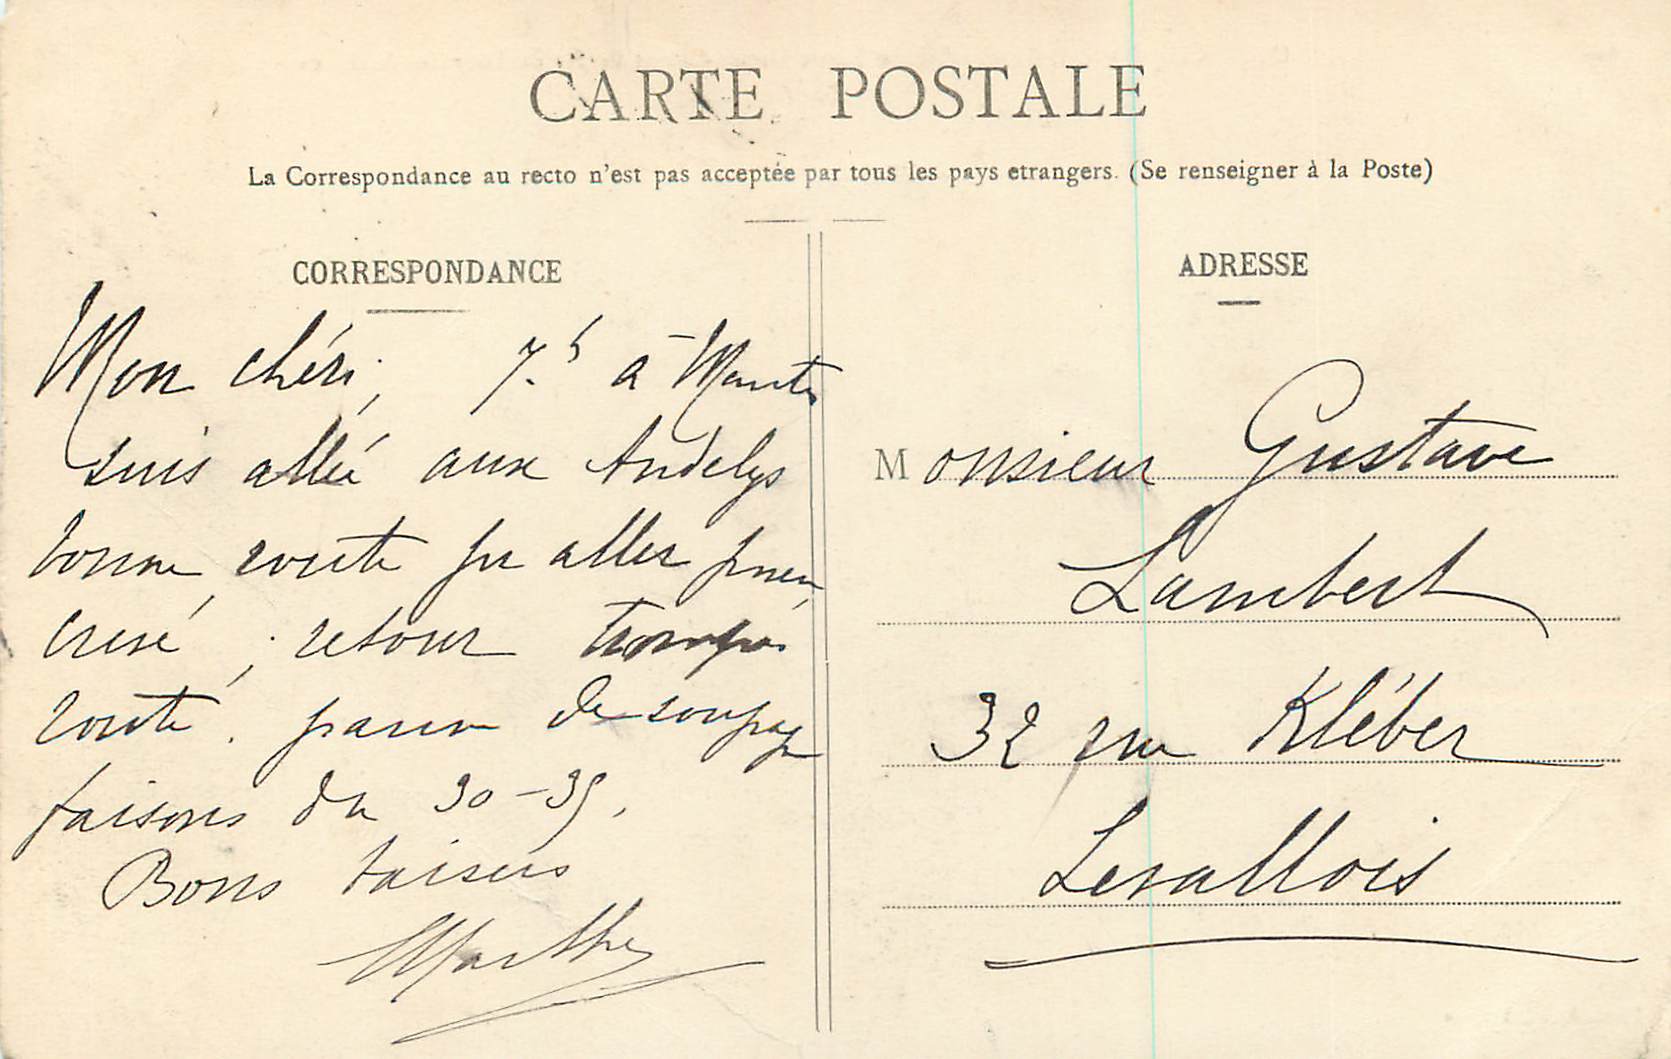 CARTE POSTALE
La Correspondance au recto n'est pas acceptée par tous les pays etrangers. (Se renseigner à la Poste)
CORRESPONDANCE
ADRESSE
Mon chéri, 7.h à Mantes
suis allée aux Andelys
bonne route pr aller pneu
crevé, retour
route. de
faisons du 30-35,
Bons baisers
Marthe
Monsieur Gustave
Lambert
32 rue Kléber
Levallois